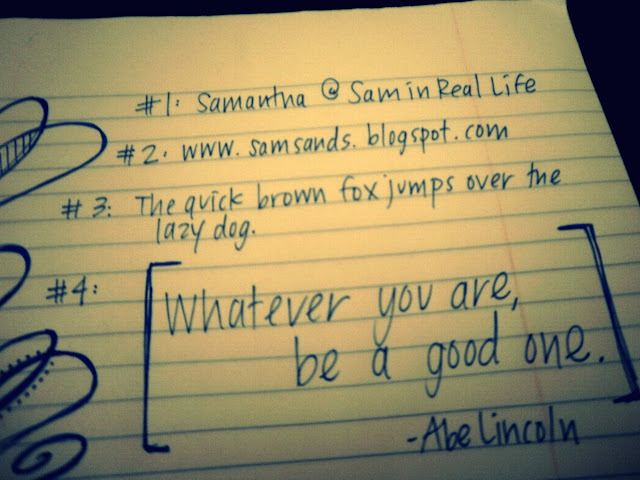 #1: Samantha @ Sam in Real Life
#2. www.samsands.blogspot.com
#3: The quick brown fox jumps over the
lazy dog.
#4: [Whatever you are,
be a good one.]
-Abe Lincoln